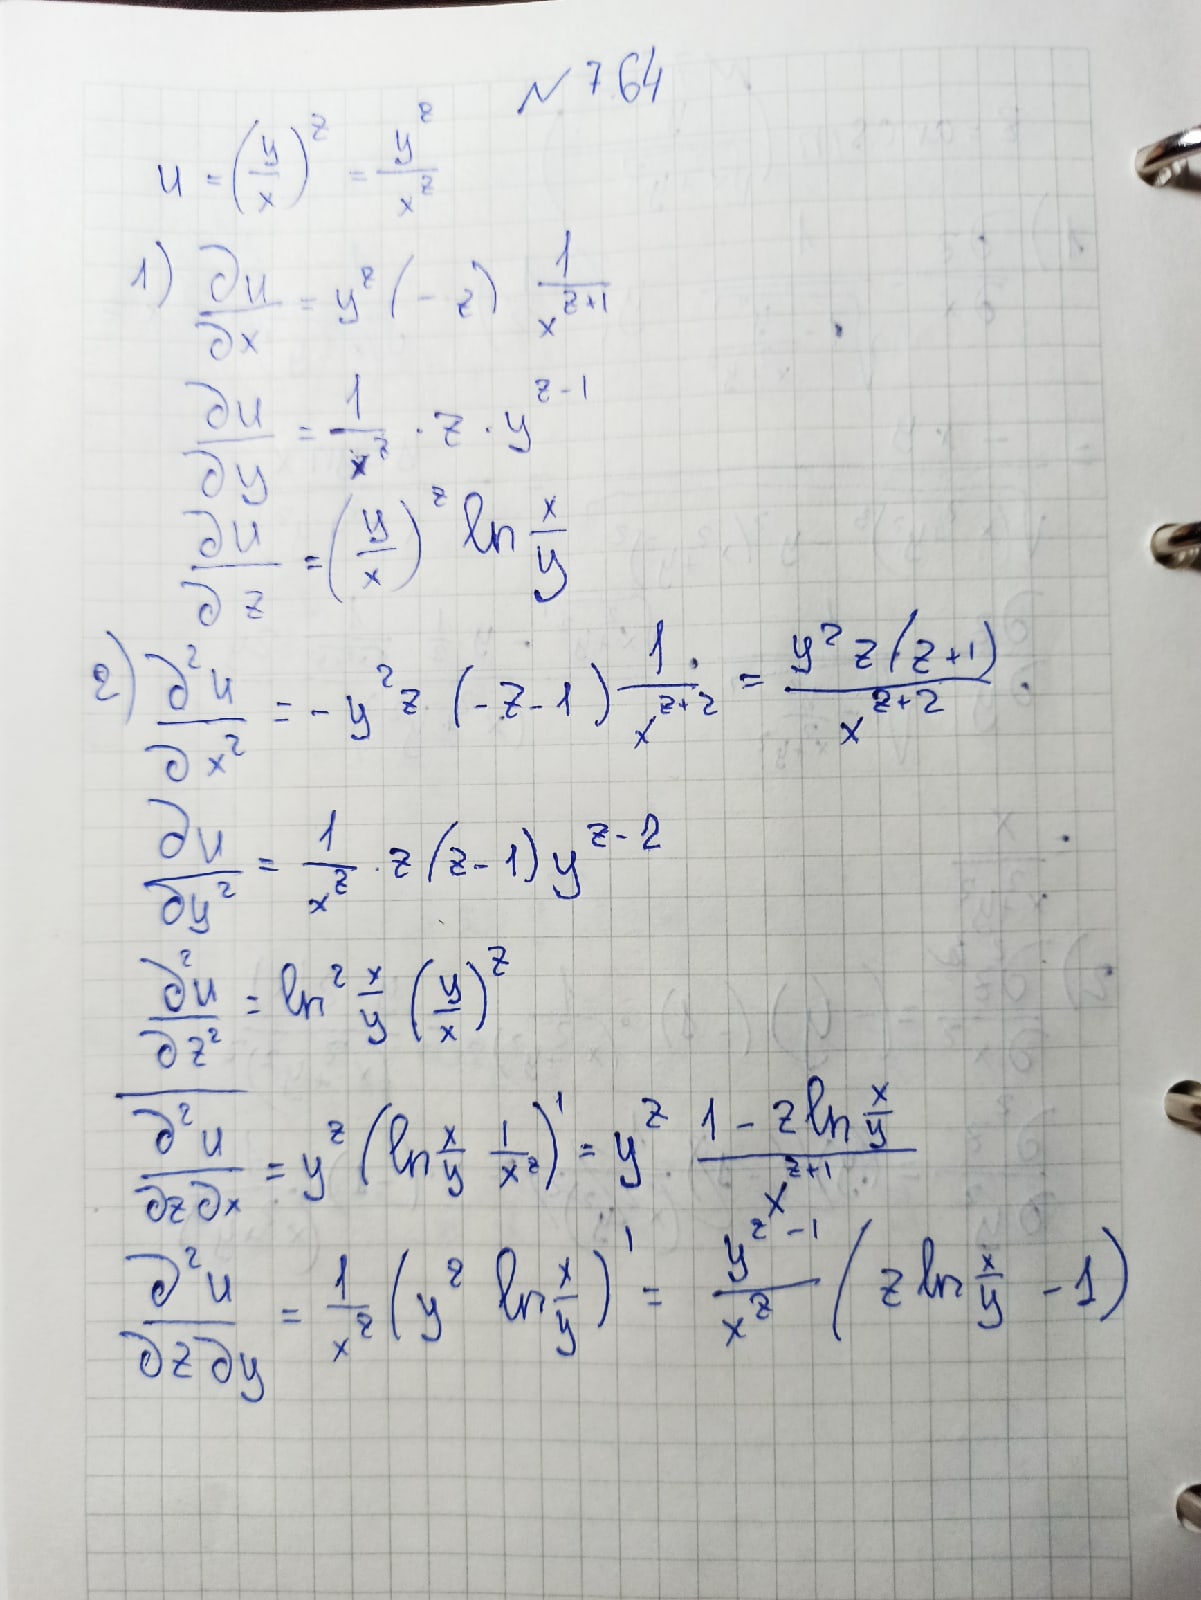 № 764
u = (y/x)^z = y^z/x^z
1) ∂u/∂x = y^z (-z) 1/x^{z+1}
∂u/∂y = 1/x^z · z · y^{z-1}
∂u/∂z = (y/x)^z ln x/y
2) ∂²u/∂x² = -y^z z (-z-1) 1/x^{z+2} = y^z z(z+1)/x^{z+2}
∂u/∂y² = 1/x^z · z(z-1) y^{z-2}
∂²u/∂z² = ln² x/y (y/x)^z
∂²u/∂z∂x = y^z (ln x/y 1/x^z)' = y^z (1 - z ln x/y)/x^{z+1}
∂²u/∂z∂y = 1/x^z (y^z ln x/y)' = y^{z-1}/x^z (z ln x/y - 1)